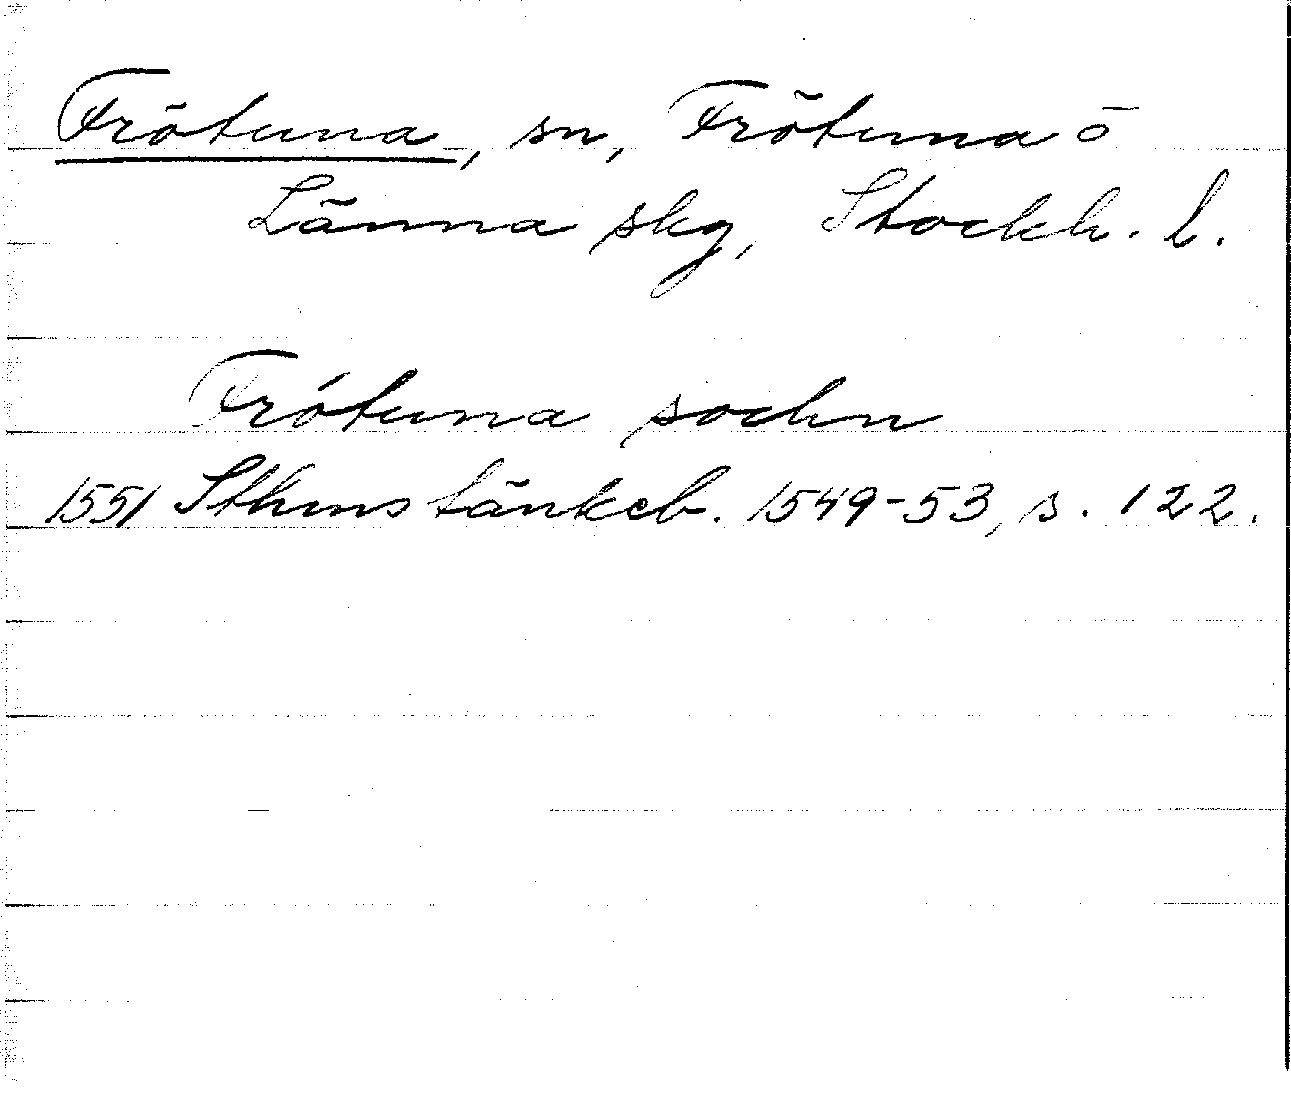 Frötuna, sn, Frötuna o
Länna skg, Stockh. l.
Frótuna sochn
1551 Sthms tänkeb. 1549-53, s. 122.